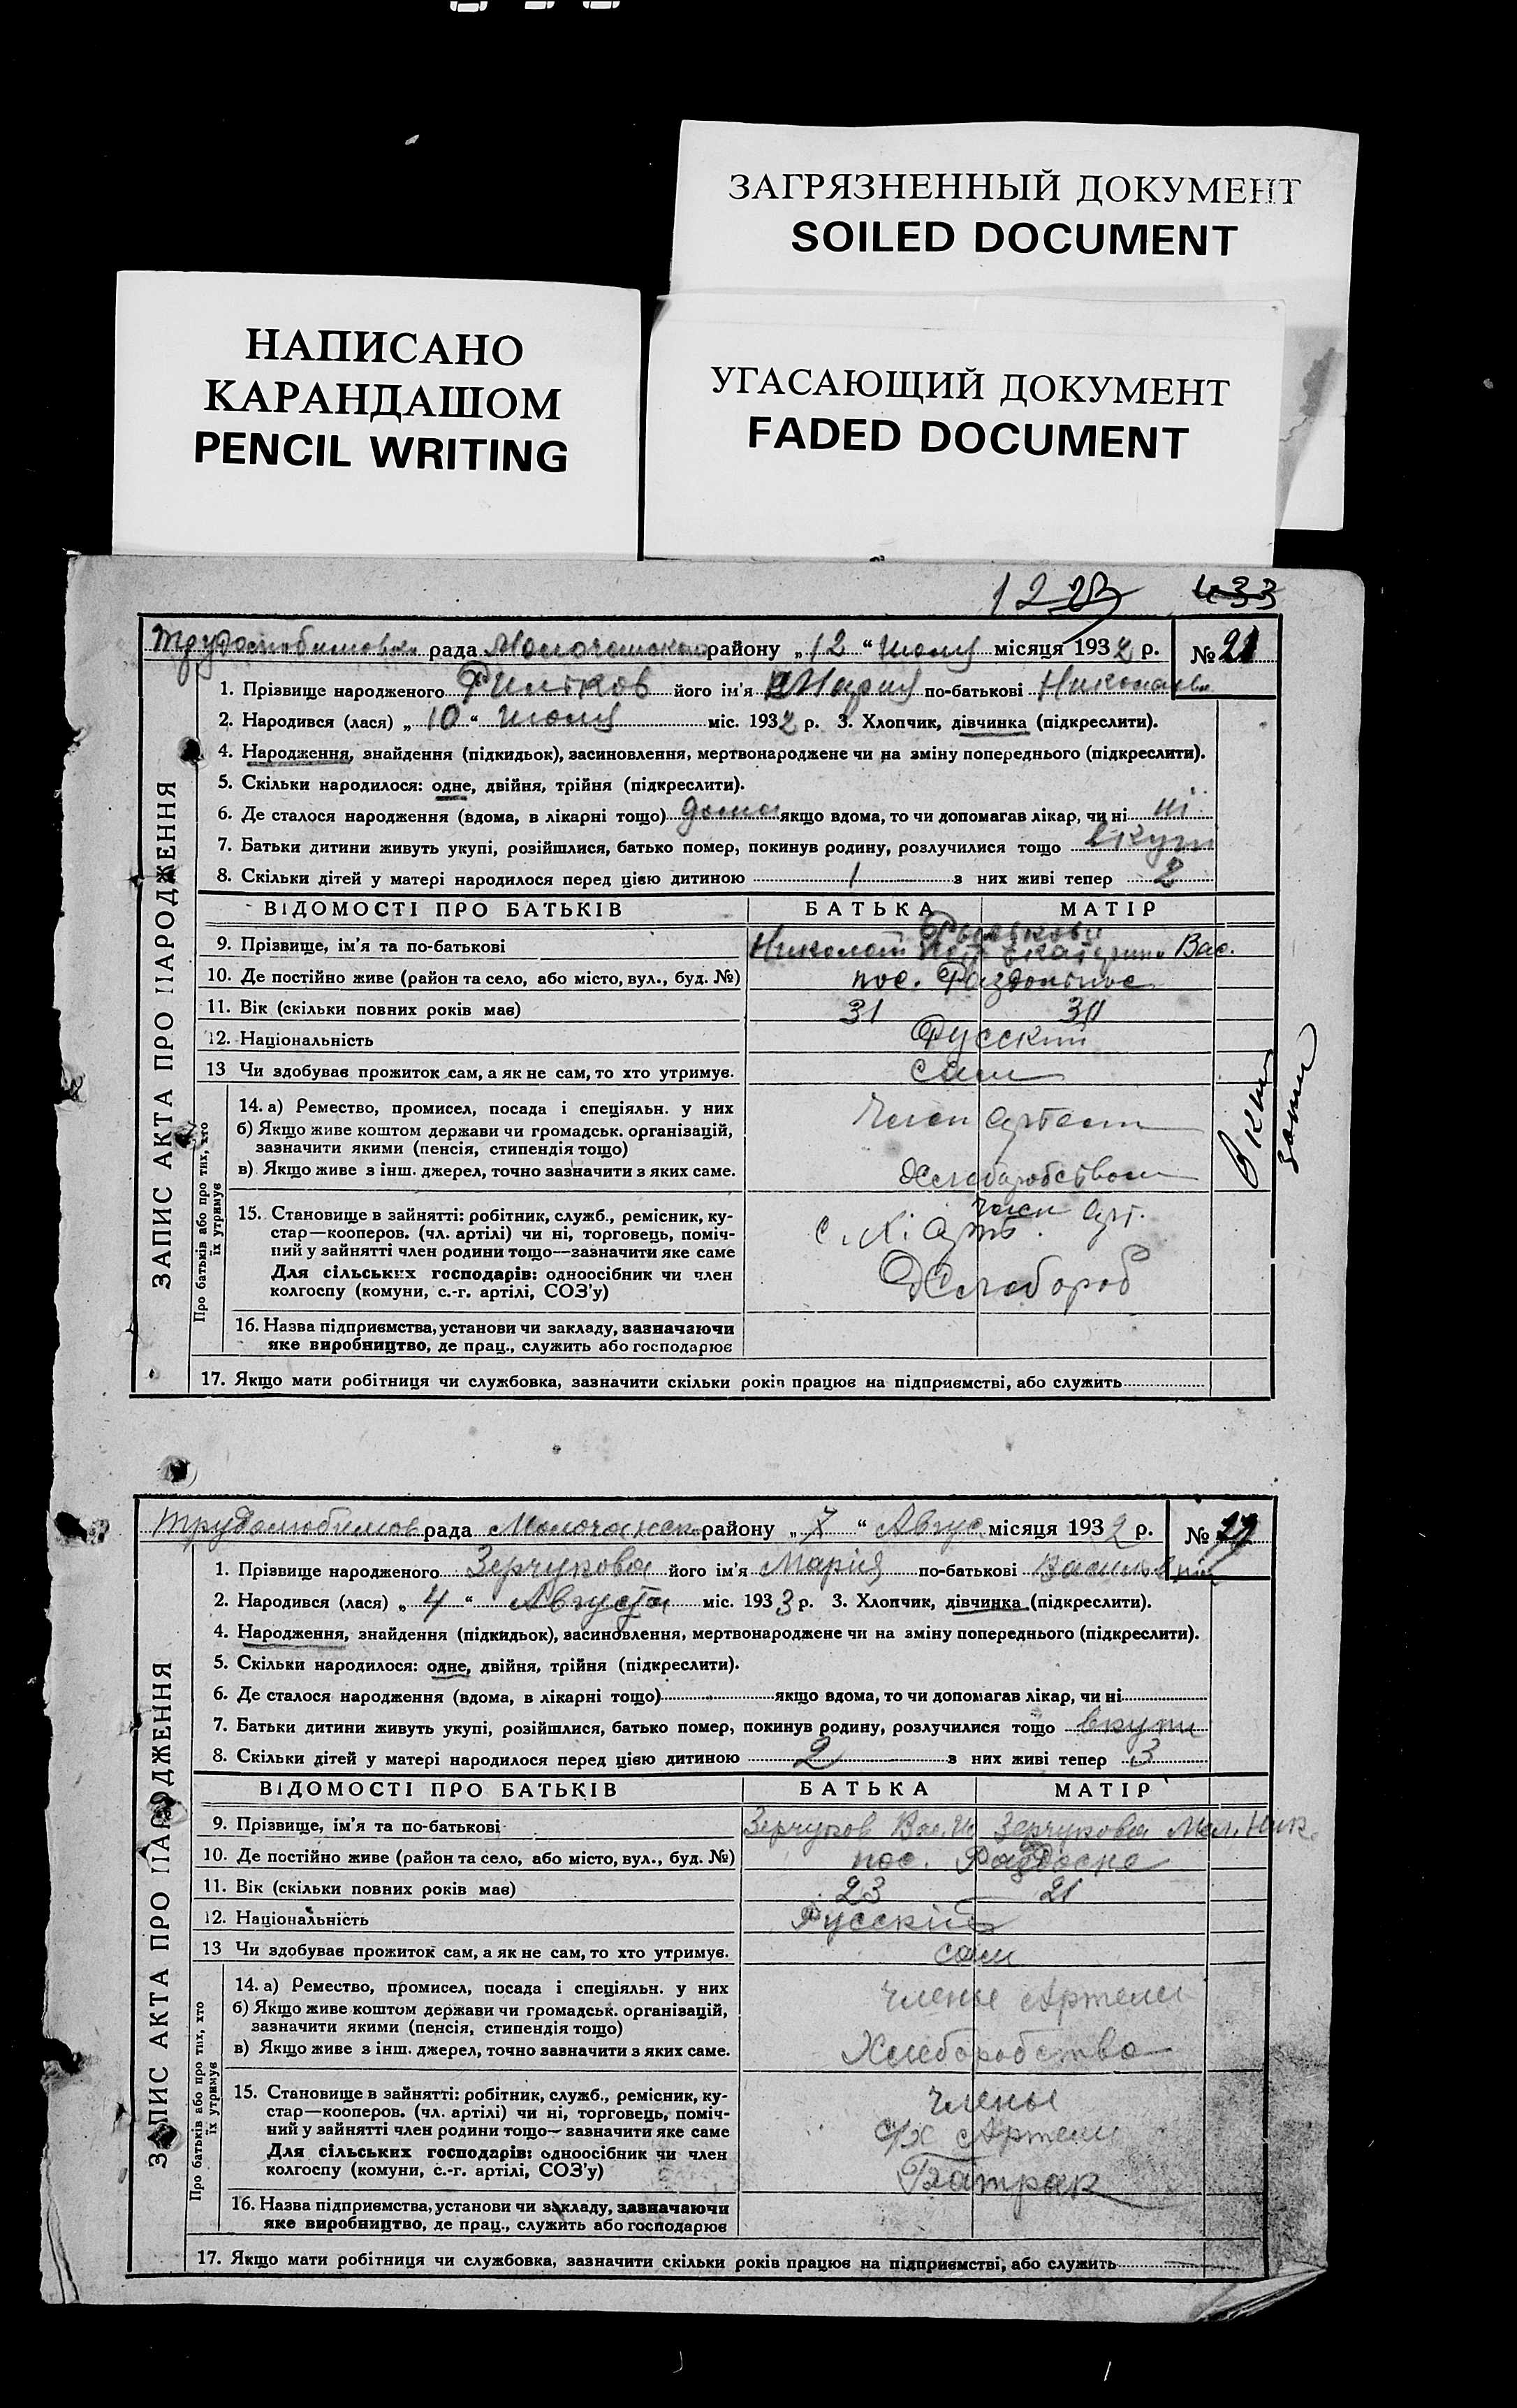 ЗАГРЯЗНЕННЫЙ ДОКУМЕНТ
SOILED DOCUMENT
НАПИСАНО
КАРАНДАШОМ
PENCIL WRITING
УГАСАЮЩИЙ ДОКУМЕНТ
FADED DOCUMENT
12 23 433
рада району „12“ місяця 1932 р. № 21
1. Прізвище народженого його ім'я по-батькові
2. Народився (лася) „10“ міс. 1932 р. 3. Хлопчик, дівчинка (підкреслити).
4. Народження, знайдення (підкидьок), засиновлення, мертвонароджене чи на зміну попереднього (підкреслити).
5. Скільки народилося: одне, двійня, трійня (підкреслити).
6. Де сталося народження (вдома, в лікарні тощо) дома якщо вдома, то чи допомагав лікар, чи ні ні
7. Батьки дитини живуть укупі, розійшлися, батько помер, покинув родину, розлучилися тощо вкупі
8. Скільки дітей у матері народилося перед цією дитиною 1 з них живі тепер 2
ВІДОМОСТІ ПРО БАТЬКІВ БАТЬКА МАТІР
9. Прізвище, ім'я та по-батькові Николай Екатерина Вас.
10. Де постійно живе (район та село, або місто, вул., буд. №) пос.
11. Вік (скільки повних років має) 31 30
12. Національність Русский
13 Чи здобував прожиток сам, а як не сам, то хто утримує. сами
14. а) Ремество, промисел, посада і спеціяльн. у них Член артели
б) Якщо живе коштом держави чи громадськ. організацій,
зазначити якими (пенсія, стипендія тощо)
в) Якщо живе з інш. джерел, точно зазначити з яких саме. Хлеборобством
15. Становище в зайнятті: робітник, служб., ремісник, ку- член арт.
стар—кооперов. (чл. артілі) чи ні, торговець, поміч- с. х. арт.
ний у зайнятті член родини тощо—зазначити яке саме
Для сільських господарів: одноосібник чи член Хлебороб
колгоспу (комуни, с.-г. артілі, СОЗ'у)
16. Назва підприємства, установи чи закладу, зазначаючи
яке виробництво, де прац., служить або господарює
17. Якщо мати робітниця чи службовка, зазначити скільки років працює на підприємстві, або служить
ЗАПИС АКТА ПРО НАРОДЖЕННЯ
Про батьків або про тих, хто
їх утримує
Трудолюбимов рада району „7“ Авгус місяця 1932 р. №
1. Прізвище народженого Зерчукова його ім'я Мария по-батькові
2. Народився (лася) „4“ Августа міс. 1933 р. 3. Хлопчик, дівчинка (підкреслити).
4. Народження, знайдення (підкидьок), засиновлення, мертвонароджене чи на зміну попереднього (підкреслити).
5. Скільки народилося: одне, двійня, трійня (підкреслити).
6. Де сталося народження (вдома, в лікарні тощо) якщо вдома, то чи допомагав лікар, чи ні
7. Батьки дитини живуть укупі, розійшлися, батько помер, покинув родину, розлучилися тощо вкупи
8. Скільки дітей у матері народилося перед цією дитиною 2 з них живі тепер 3
ВІДОМОСТІ ПРО БАТЬКІВ БАТЬКА МАТІР
9. Прізвище, ім'я та по-батькові Зерчуков Вас. Зерчукова Ник.
10. Де постійно живе (район та село, або місто, вул., буд. №) пос.
11. Вік (скільки повних років має) 23 21
12. Національність
13 Чи здобував прожиток сам, а як не сам, то хто утримує. сами
14. а) Ремество, промисел, посада і спеціяльн. у них члены Артели
б) Якщо живе коштом держави чи громадськ. організацій,
зазначити якими (пенсія, стипендія тощо)
в) Якщо живе з інш. джерел, точно зазначити з яких саме. Хлеборобство
15. Становище в зайнятті: робітник, служб., ремісник, ку- члены
стар—кооперов. (чл. артілі) чи ні, торговець, поміч-
ний у зайнятті член родини тощо—зазначити яке саме с/х Артели
Для сільських господарів: одноосібник чи член
колгоспу (комуни, с.-г. артілі, СОЗ'у) Батрак
16. Назва підприємства, установи чи закладу, зазначаючи
яке виробництво, де прац., служить або господарює
17. Якщо мати робітниця чи службовка, зазначити скільки років працює на підприємстві, або служить
ЗАПИС АКТА ПРО НАРОДЖЕННЯ
Про батьків або про тих, хто
їх утримує